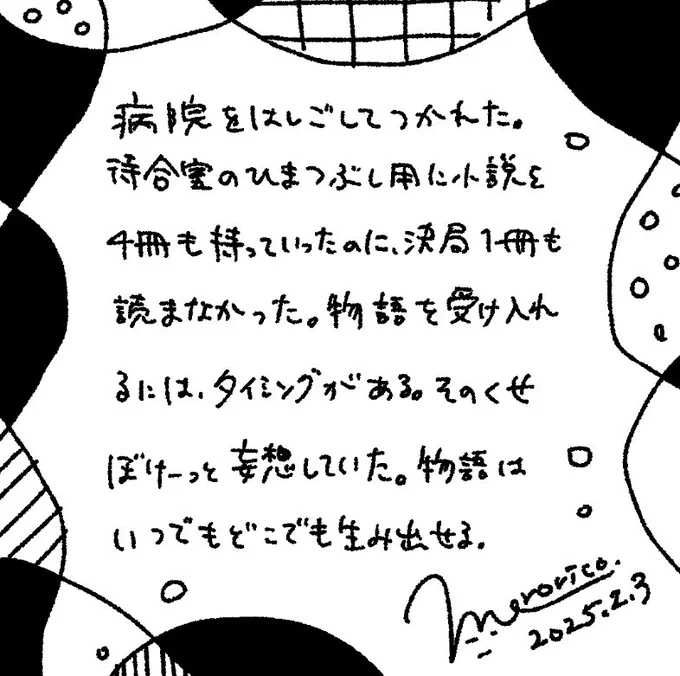 病院をはしごしてつかれた。
待合室のひまつぶし用に小説を
4冊も持っていったのに、決局1冊も
読まなかった。物語を受け入れ
るには、タイミングがある。そのくせ
ぼけーっと妄想していた。物語は
いつでもどこでも生み出せる。
merorico.
2025.2.3